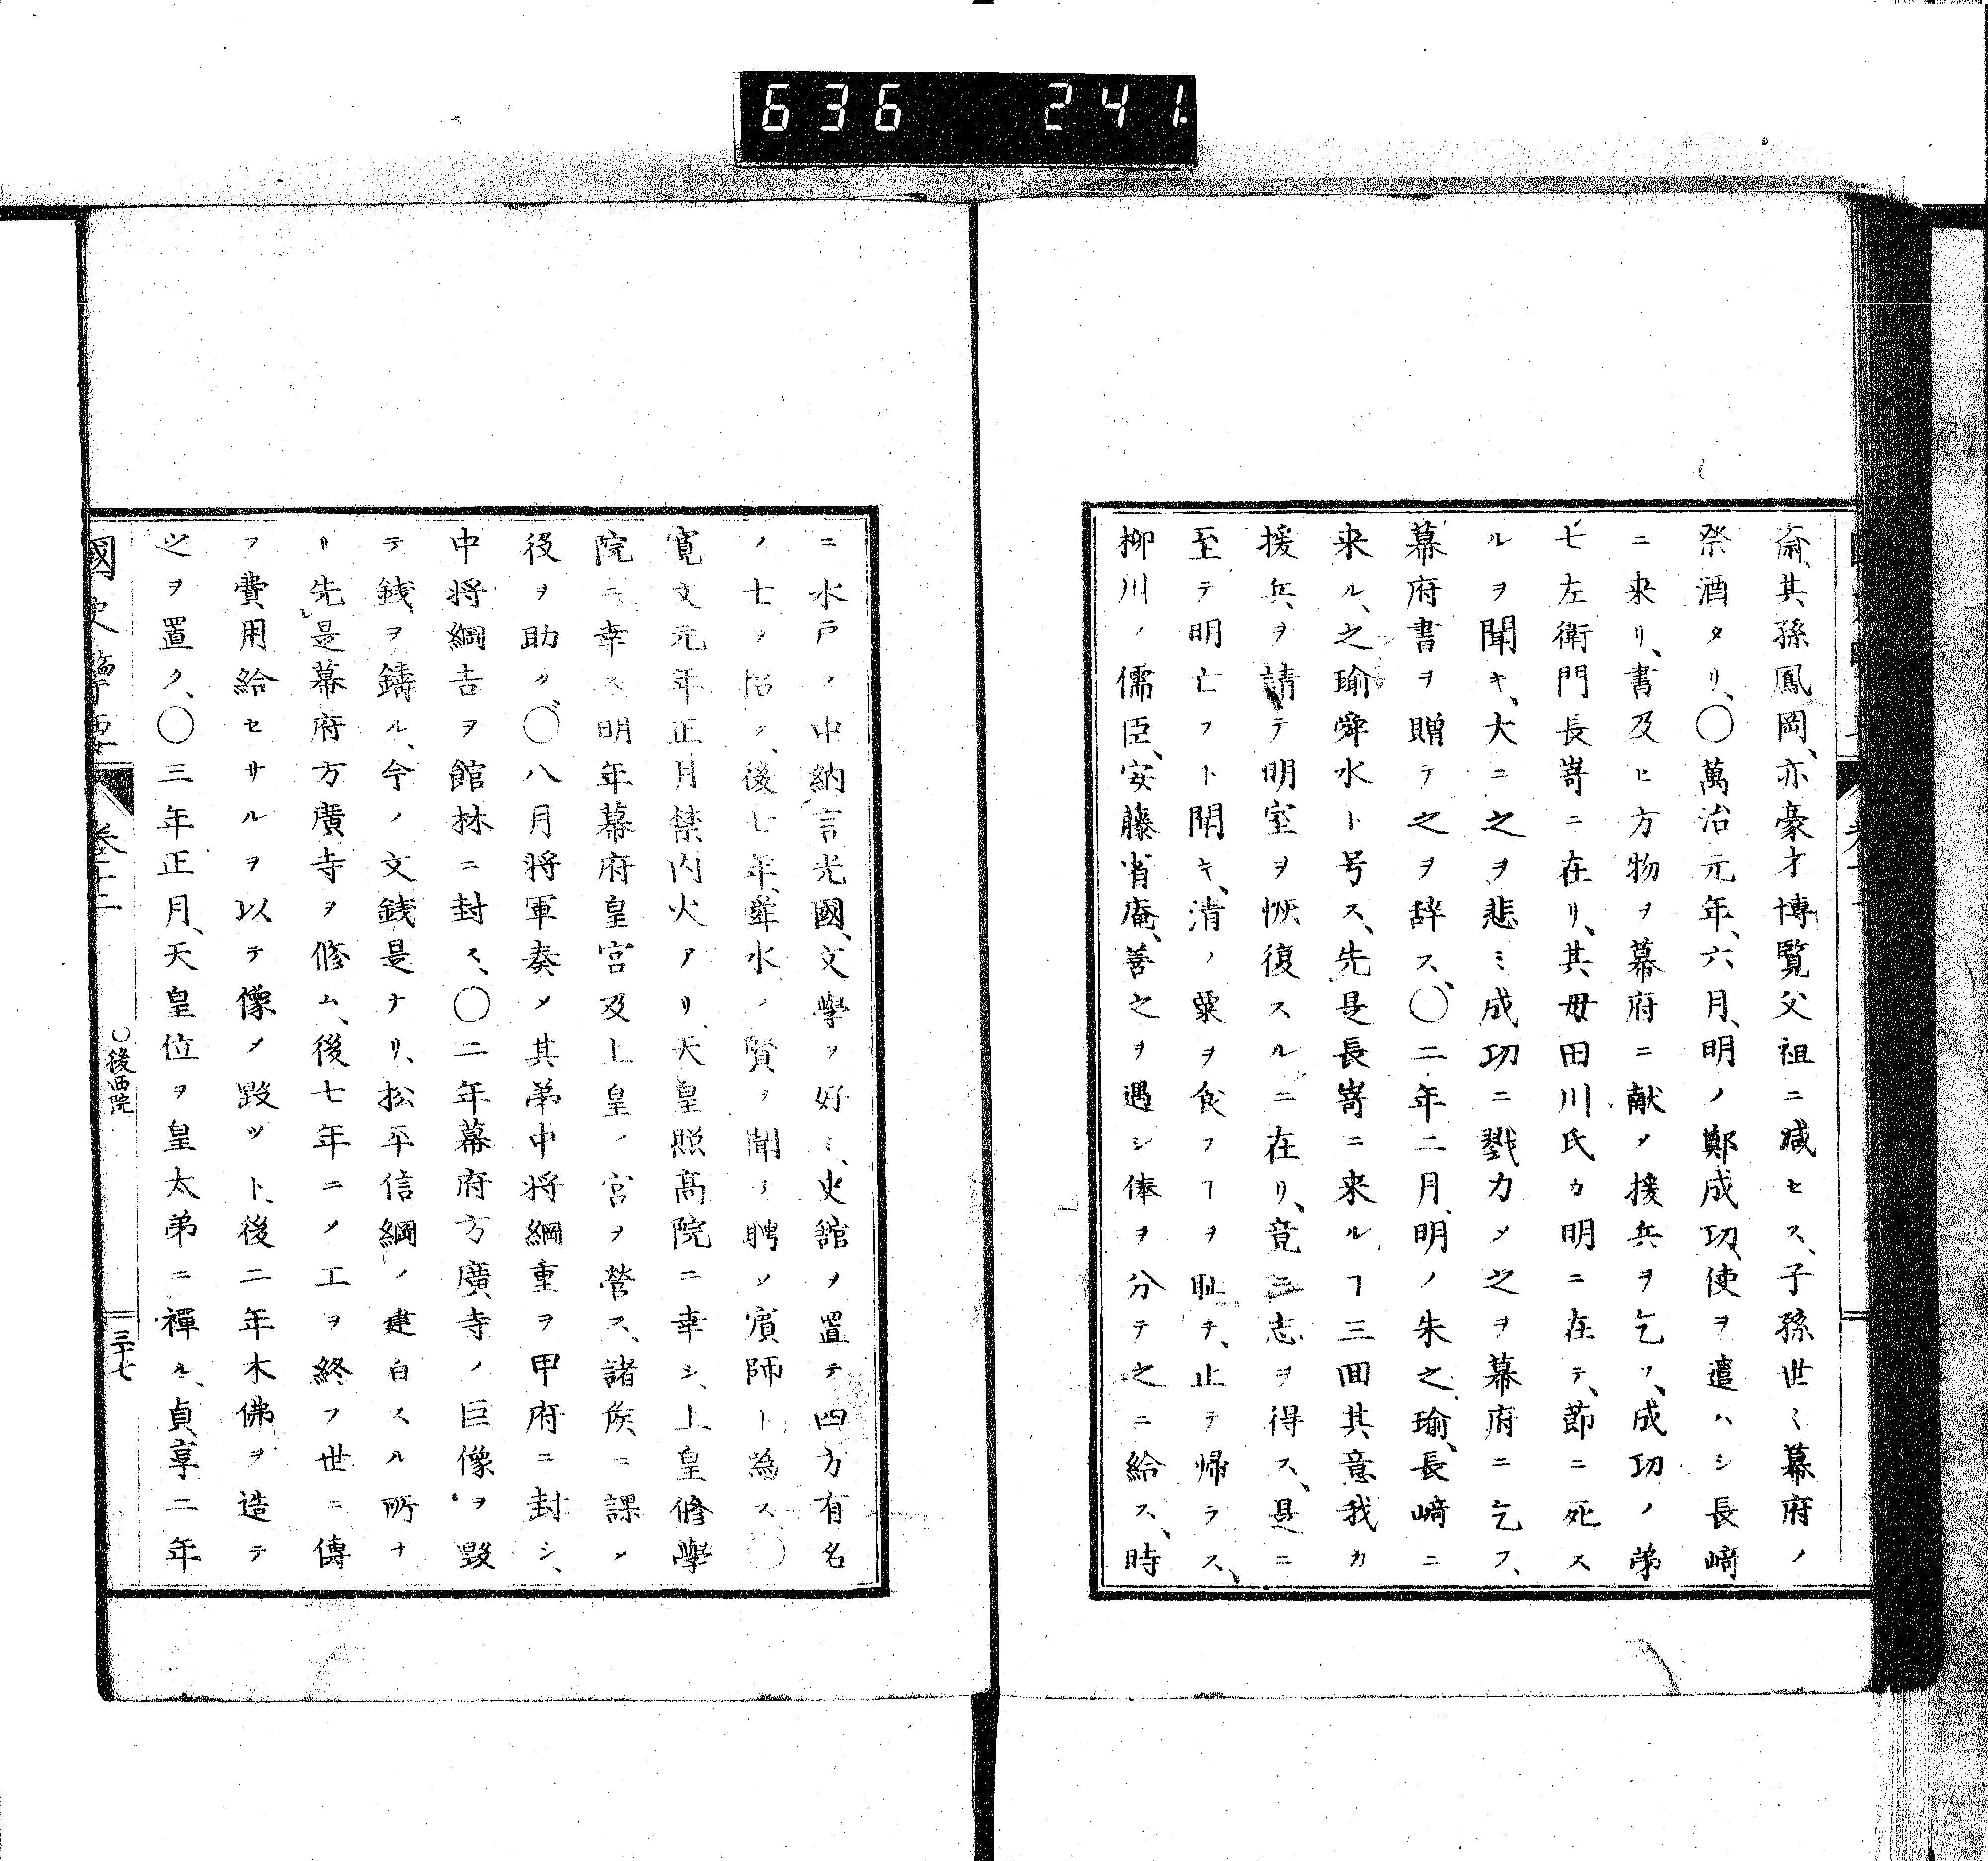 636 241
斎、其孫鳳岡、亦豪才博覧父祖ニ减セス、子孫世〻幕府ノ
祭酒タリ、〇萬治元年、六月、明ノ鄭成功、使ヲ遣ハシ長﨑
ニ来リ、書及ヒ方物ヲ幕府ニ献メ援兵ヲ乞フ、成功ノ弟
七左衛門長嵜ニ在リ、其母田川氏カ明ニ在テ、節ニ死ス
ルヲ聞キ、大ニ之ヲ悲ミ成功ニ戮力メ之ヲ幕府ニ乞フ、
幕府書ヲ贈テ之ヲ辞ス、〇二年二月、明ノ朱之瑜、長﨑ニ
来ル、之瑜舜水ト号ス、先是長嵜ニ来ルヿ三回其意我カ
援兵ヲ請テ明室ヲ恢復スルニ在リ、竟ニ志ヲ得ス、是ニ
至テ明亡フト聞キ、清ノ粟ヲ食フヿヲ耻チ、止テ帰ラス、
柳川ノ儒臣、安藤省庵、善之ヲ遇シ俸ヲ分テ之ニ給ス、時
ニ水戸ノ中納言光國、文學ヲ好ミ、史舘ヲ置テ四方有名
ノ士ヲ招ク、後七年、舜水ノ賢ヲ聞テ聘ソ賓師ト為ス、〇
寛文元年正月禁内火アリ、天皇照高院ニ幸シ、上皇修學
院ニ幸ス明年幕府皇宮及上皇ノ宮ヲ營ス、諸侯ニ課メ
役ヲ助ク、〇八月将軍奏メ其弟中将綱重ヲ甲府ニ封シ、
中将綱吉ヲ館林ニ封ス、〇二年幕府方廣寺ノ巨像ヲ毀
テ銭ヲ鑄ル、今ノ文銭是ナリ、松平信綱ノ建白スル所ナ
リ先是幕府方廣寺ヲ修ム、後七年ニメ工ヲ終フ世ニ傳
フ費用給セサルヲ以テ像メ毀ツト、後二年木佛ヲ造テ
之ヲ置ク、〇三年正月、天皇位ヲ皇太弟ニ禪ル、貞享二年
國史擥要 巻十二 〇後西院 三十七